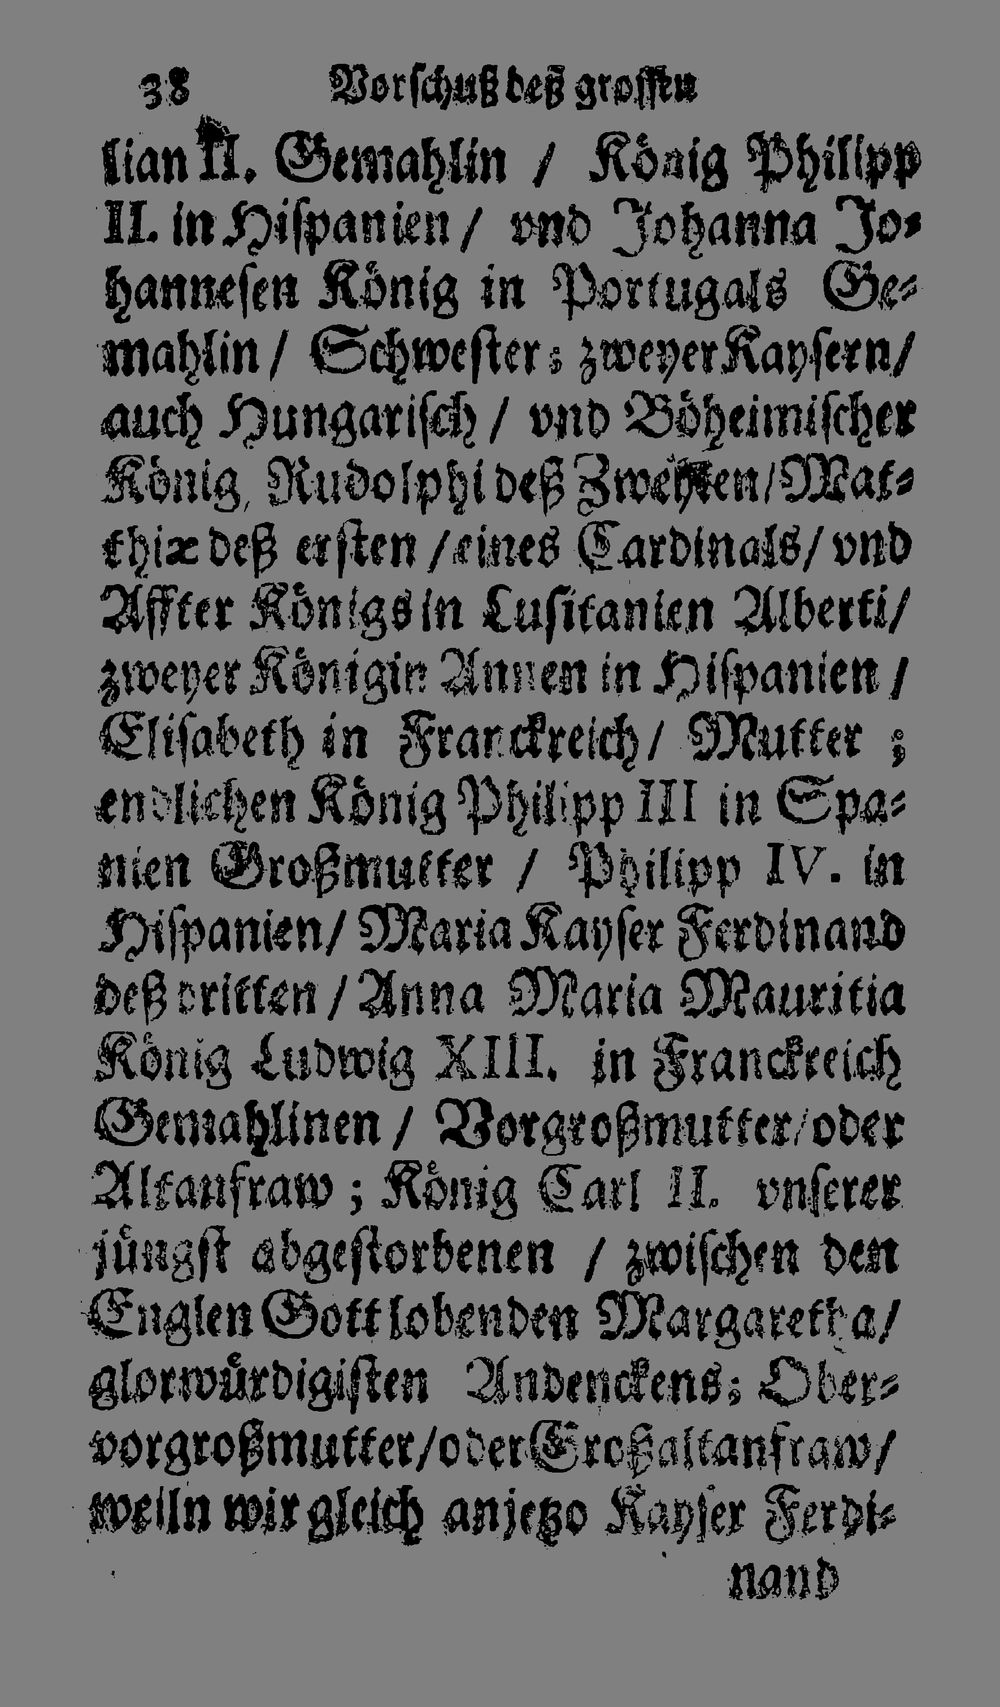 38 Vorschuß deß grossen
lian II. Gemahlin / König Philipp
II. in Hispanien / vnd Johanna Jo-
hannesen König in Portugals Ge-
mahlin / Schwester; zweyer Kaysern /
auch Hungarisch / vnd Böheimischer
König, Rudolphi deß Zweyten / Mat-
thiæ deß ersten / eines Cardinals / vnd
Affter Königs in Lusitanien Alberti /
zweyer Königin Annen in Hispanien /
Elisabeth in Franckreich / Mutter ;
endlichen König Philipp III in Spa-
nien Großmutter / Philipp IV. in
Hispanien / Maria Kayser Ferdinand
deß dritten / Anna Maria Mauritia
König Ludwig XIII. in Franckreich
Gemahlinen / Vorgroßmutter / oder
Altanfraw ; König Carl II. vnserer
jüngst abgestorbenen / zwischen den
Englen Gott lobenden Margaretha /
glorwürdigisten Andenckens; Ober-
vorgroßmutter / oder Großaltanfraw /
weiln wir gleich anjetzo Kayser Ferdi-
nand